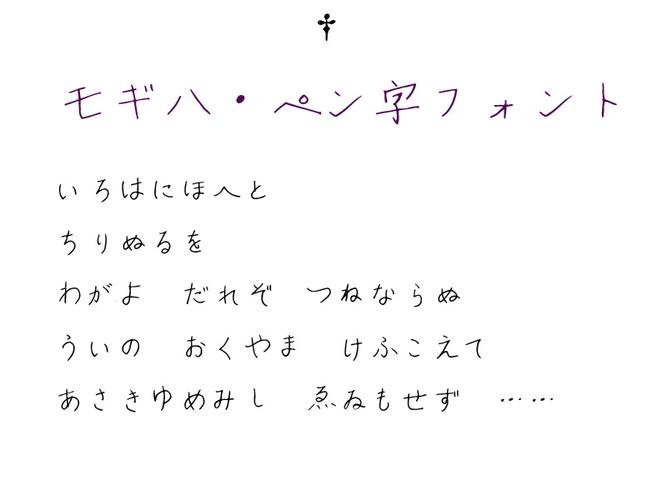 †
モギハ・ペン字フォント
いろはにほへと
ちりぬるを
わがよ　だれぞ　つねならぬ
うゐの　おくやま　けふこえて
あさきゆめみし　ゑゐもせず　……